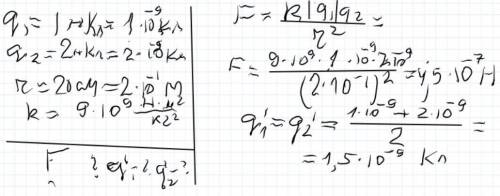 q₁ = 1нКл = 1·10⁻⁹ Кл
q₂ = 2нКл = 2·10⁻⁹ Кл
r = 20 см = 2·10⁻¹ м
k = 9·10⁹ Н·м²/Кл²
F - ? q₁' - ? q₂' - ?
F = k|q₁|q₂/r² =
F = 9·10⁹·1·10⁻⁹·2·10⁻⁹/(2·10⁻¹)² = 4,5·10⁻⁷ Н
q₁' = q₂' = 1·10⁻⁹ + 2·10⁻⁹/2 =
= 1,5·10⁻⁹ Кл